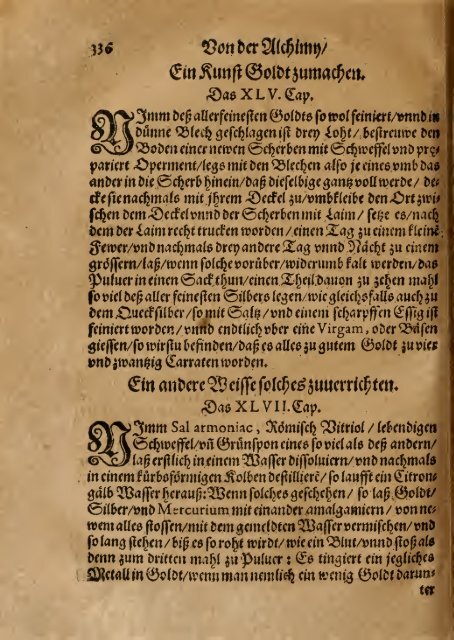 336 Von der Alchimy/
Ein Kunst Goldt zumachen.
Das XLV. Cap.
NImm deß allerfeinesten Goldts so wol feiniert/vnnd in
dünne Blech geschlagen ist drey Loht/bestreuwe den
Boden einer newen Scherben mit Schweffel vnd pre-
pariert Operment/legs mit den Blechen also je eines vmb das
ander in die Scherb hinein/daß dieselbige gantz voll werde/de-
cke sie nachmals mit jhrem Deckel zu/vmbkleibe den Ort zwi-
schen dem Deckel vnnd der Scherben mit Laim/setze es/nach
dem der Laim recht trucken worden/einen Tag zu einem kleinẽ
Fewer/vnd nachmals drey andere Tag vnnd Nächt zu einem
grössern/laß/wenn solche vorüber/widerumb kalt werden/das
Puluer in einen Sack thun/einen Theil dauon zu zehen mahl
so viel deß aller feinesten Silbers legen/wie gleichsfalls auch zu
dem Quecksilber/so mit Saltz/vnd einem scharpffen Essig ist
feiniert worden/vnnd endtlich vber eine Virgam, oder Bäsen
giessen/so wirstu befinden/daß es alles zu gutem Goldt zu vier
vnd zwantzig Carraten worden.
Ein andere Weisse solches zuuerrichten.
Das XLVII. Cap.
NImm Sal armoniac, Römisch Vitriol/lebendigen
Schweffel/vñ Grünspon eines so viel als deß andern/
laß erstlich in einem Wasser dissoluiern/vnd nachmals
in einem kürbsförmigen Kolben destilliern/so laufft ein Citron-
gälb Wasser herauß: Wenn solches geschehen/so laß Goldt/
Silber/vnd Mercurium mit einander amalgamiern/von ne-
wem alles stossen/mit dem gemeldten Wasser vermischen/vnd
so lang stehen/biß es so roht wirdt/wie ein Blut/vnnd stoß als
denn zum dritten mahl zu Puluer: Es tingiert ein jegliches
Metall in Goldt/wenn man nemlich ein wenig Goldt darun-
ter